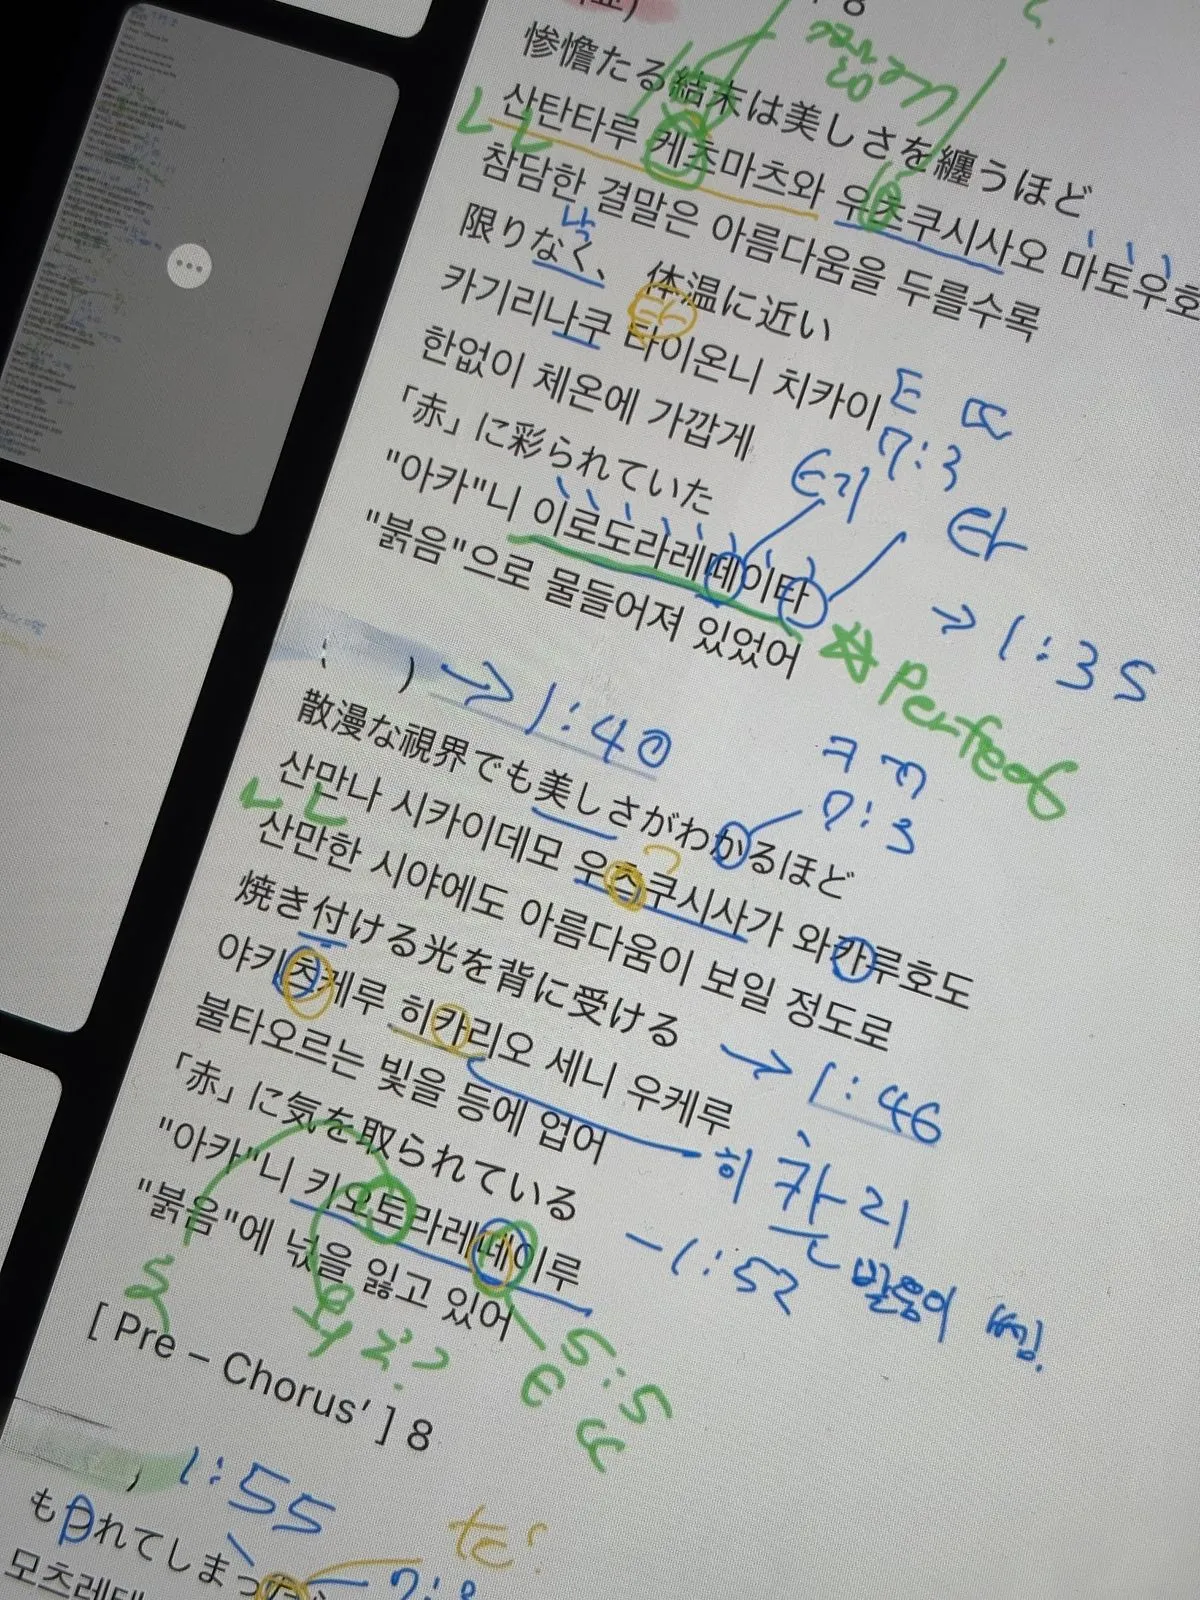 8
惨憺たる結末は美しさを纏うほど
산탄타루 케츠마츠와 우츠쿠시사오 마토우호
참담한 결말은 아름다움을 두를수록
낙
限りなく、体温に近い
카기리나쿠 타이온니 치카이
ㅌ ㄸ
7:3
한없이 체온에 가깝게
「赤」に彩られていた
"아카"니 이로도라레떼이타
타
→ 1:35
"붉음"으로 물들어져 있었어
Perfect
→ 1:40
散漫な視界でも美しさがわかるほど
ㅋ ㄲ
7:3
산만나 시카이데모 우츠쿠시사가 와카루호도
산만한 시야에도 아름다움이 보일 정도로
焼き付ける光を背に受ける
야키츠케루 히카리오 세니 우케루
→ 1:46
불타오르는 빛을 등에 업어
히카리
발음이 쎔.
「赤」に気を取られている
"아카"니 키오토라레떼이루
-1:52
"붉음"에 넋을 잃고 있어
5:5
ㅌ ㄸ
[ Pre – Chorus’ ] 8
1:55
もつれてしまった
모츠레테